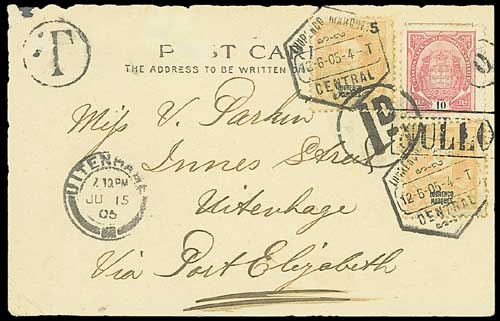 T
POST CARD
THE ADDRESS TO BE WRITTEN ON
Miss V. Parkin
Innes Street
Uitenhage
Via Port Elizabeth
UITENHAGE
7.10PM
JU 15
05
LOURENÇO MARQUES
12-6-05-4-T
CENTRAL
10
1D
NULLO
LOURENÇO MARQUES
12-6-05-4-T
CENTRAL